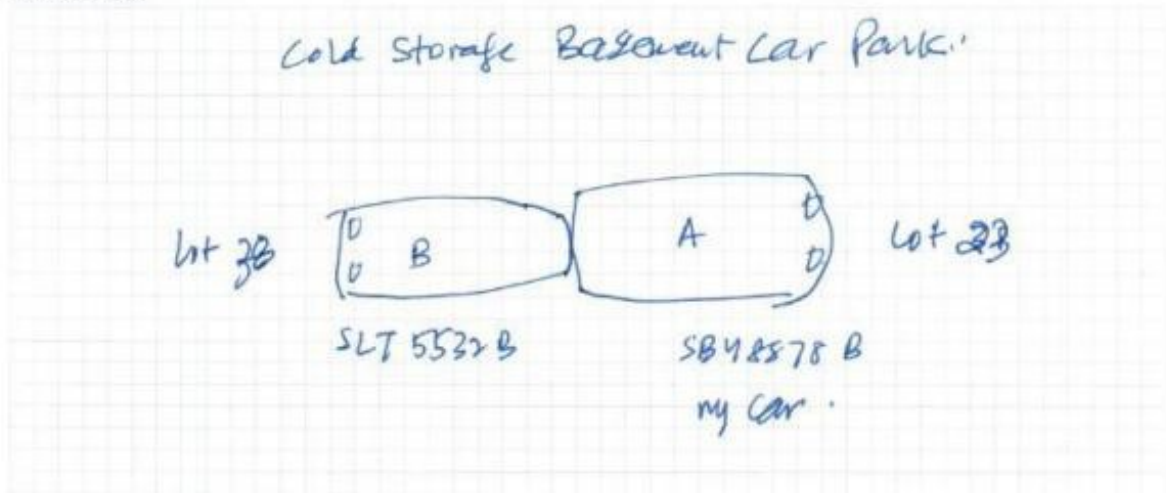 Cold Storage Basement Car Park.
Lot 38
B
A
Lot 23
SLT 5532 B
SBY 8878 B
my car.